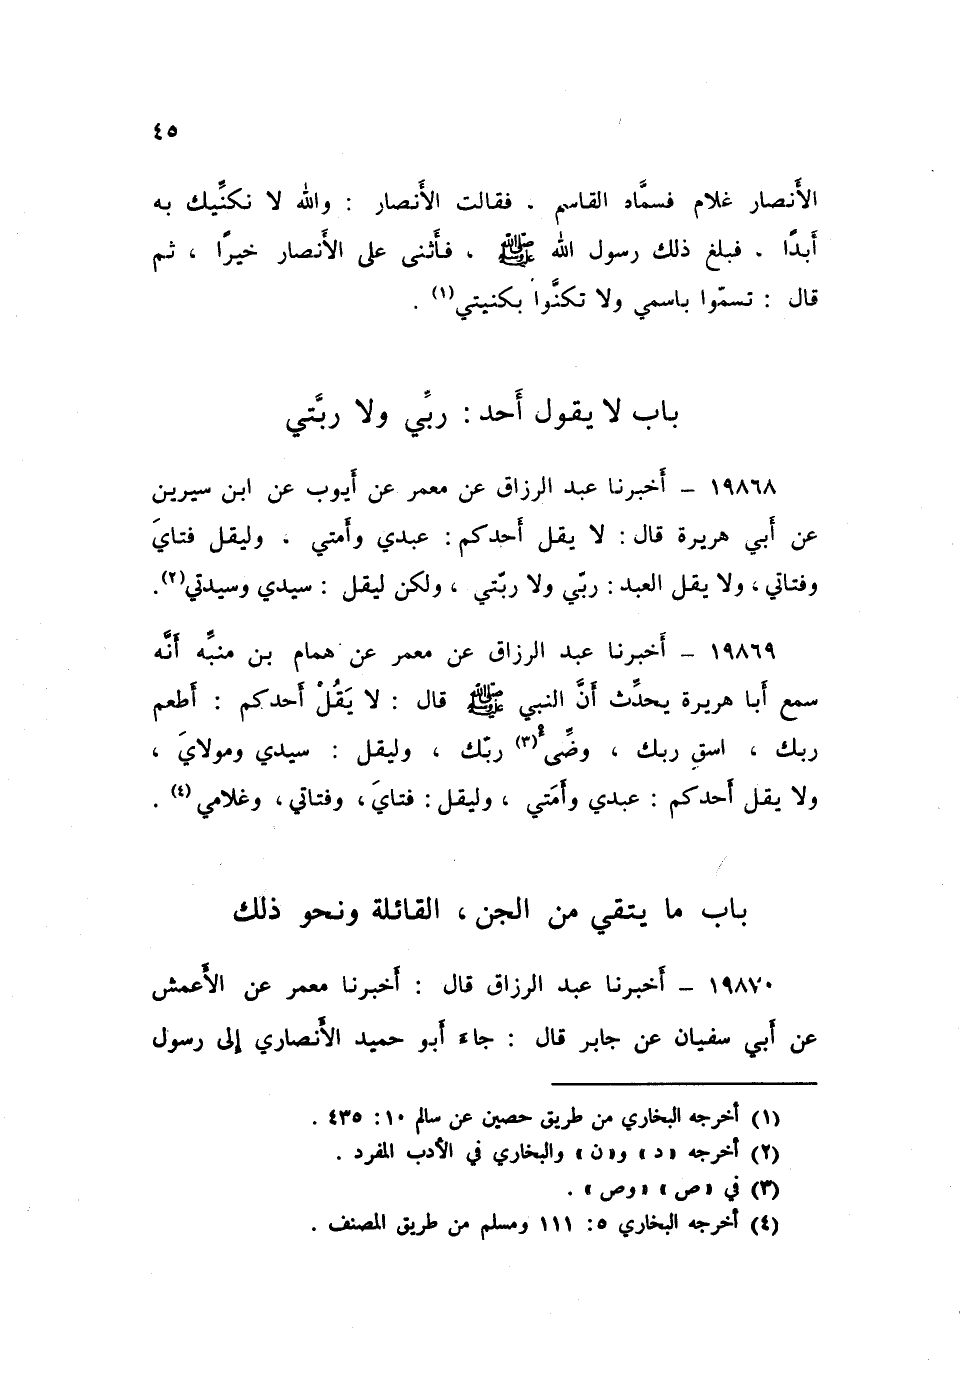 ٤٥
الأَنصار غلام فسمَّاه القاسم . فقالت الأَنصار : والله لا نكنِّيك به
أَبدًا . فبلغ ذلك رسول الله ﷺ ، فأَثنى على الأَنصار خيرًا ، ثم
قال : تسمّوا باسمي ولا تكنَّوا بكنيتي(١) .
باب لا يقول أَحد : ربِّي ولا ربَّتي
١٩٨٦٨ – أَخبرنا عبد الرزاق عن معمر عن أَيوب عن ابن سيرين
عن أَبي هريرة قال : لا يقل أَحدكم : عبدي وأَمتي . وليقل فتايَ
وفتاتي ، ولا يقل العبد : ربّي ولا ربّتي ، ولكن ليقل : سيدي وسيدتي(٢).
١٩٨٦٩ – أَخبرنا عبد الرزاق عن معمر عن همام بن منبِّه أَنَّه
سمع أَبا هريرة يحدِّث أَنَّ النبي ﷺ قال : لا يَقُلْ أَحدكم : أَطعم
ربك ، اسقِ ربك ، وضِّىء(٣) ربّك ، وليقل : سيدي ومولايَ ،
ولا يقل أَحدكم : عبدي وأَمَتي ، وليقل : فتايَ ، وفتاتي ، وغلامي(٤) .
باب ما يتقي من الجن ، القائلة ونحو ذلك
١٩٨٧٠ – أَخبرنا عبد الرزاق قال : أَخبرنا معمر عن الأَعمش
عن أَبي سفيان عن جابر قال : جاء أَبو حميد الأَنصاري إلى رسول
(١) أخرجه البخاري من طريق حصين عن سالم ١٠: ٤٣٥ .
(٢) أخرجه «د» و«ن» والبخاري في الأدب المفرد .
(٣) في «ص» «وص» .
(٤) أخرجه البخاري ٥: ١١١ ومسلم من طريق المصنف .